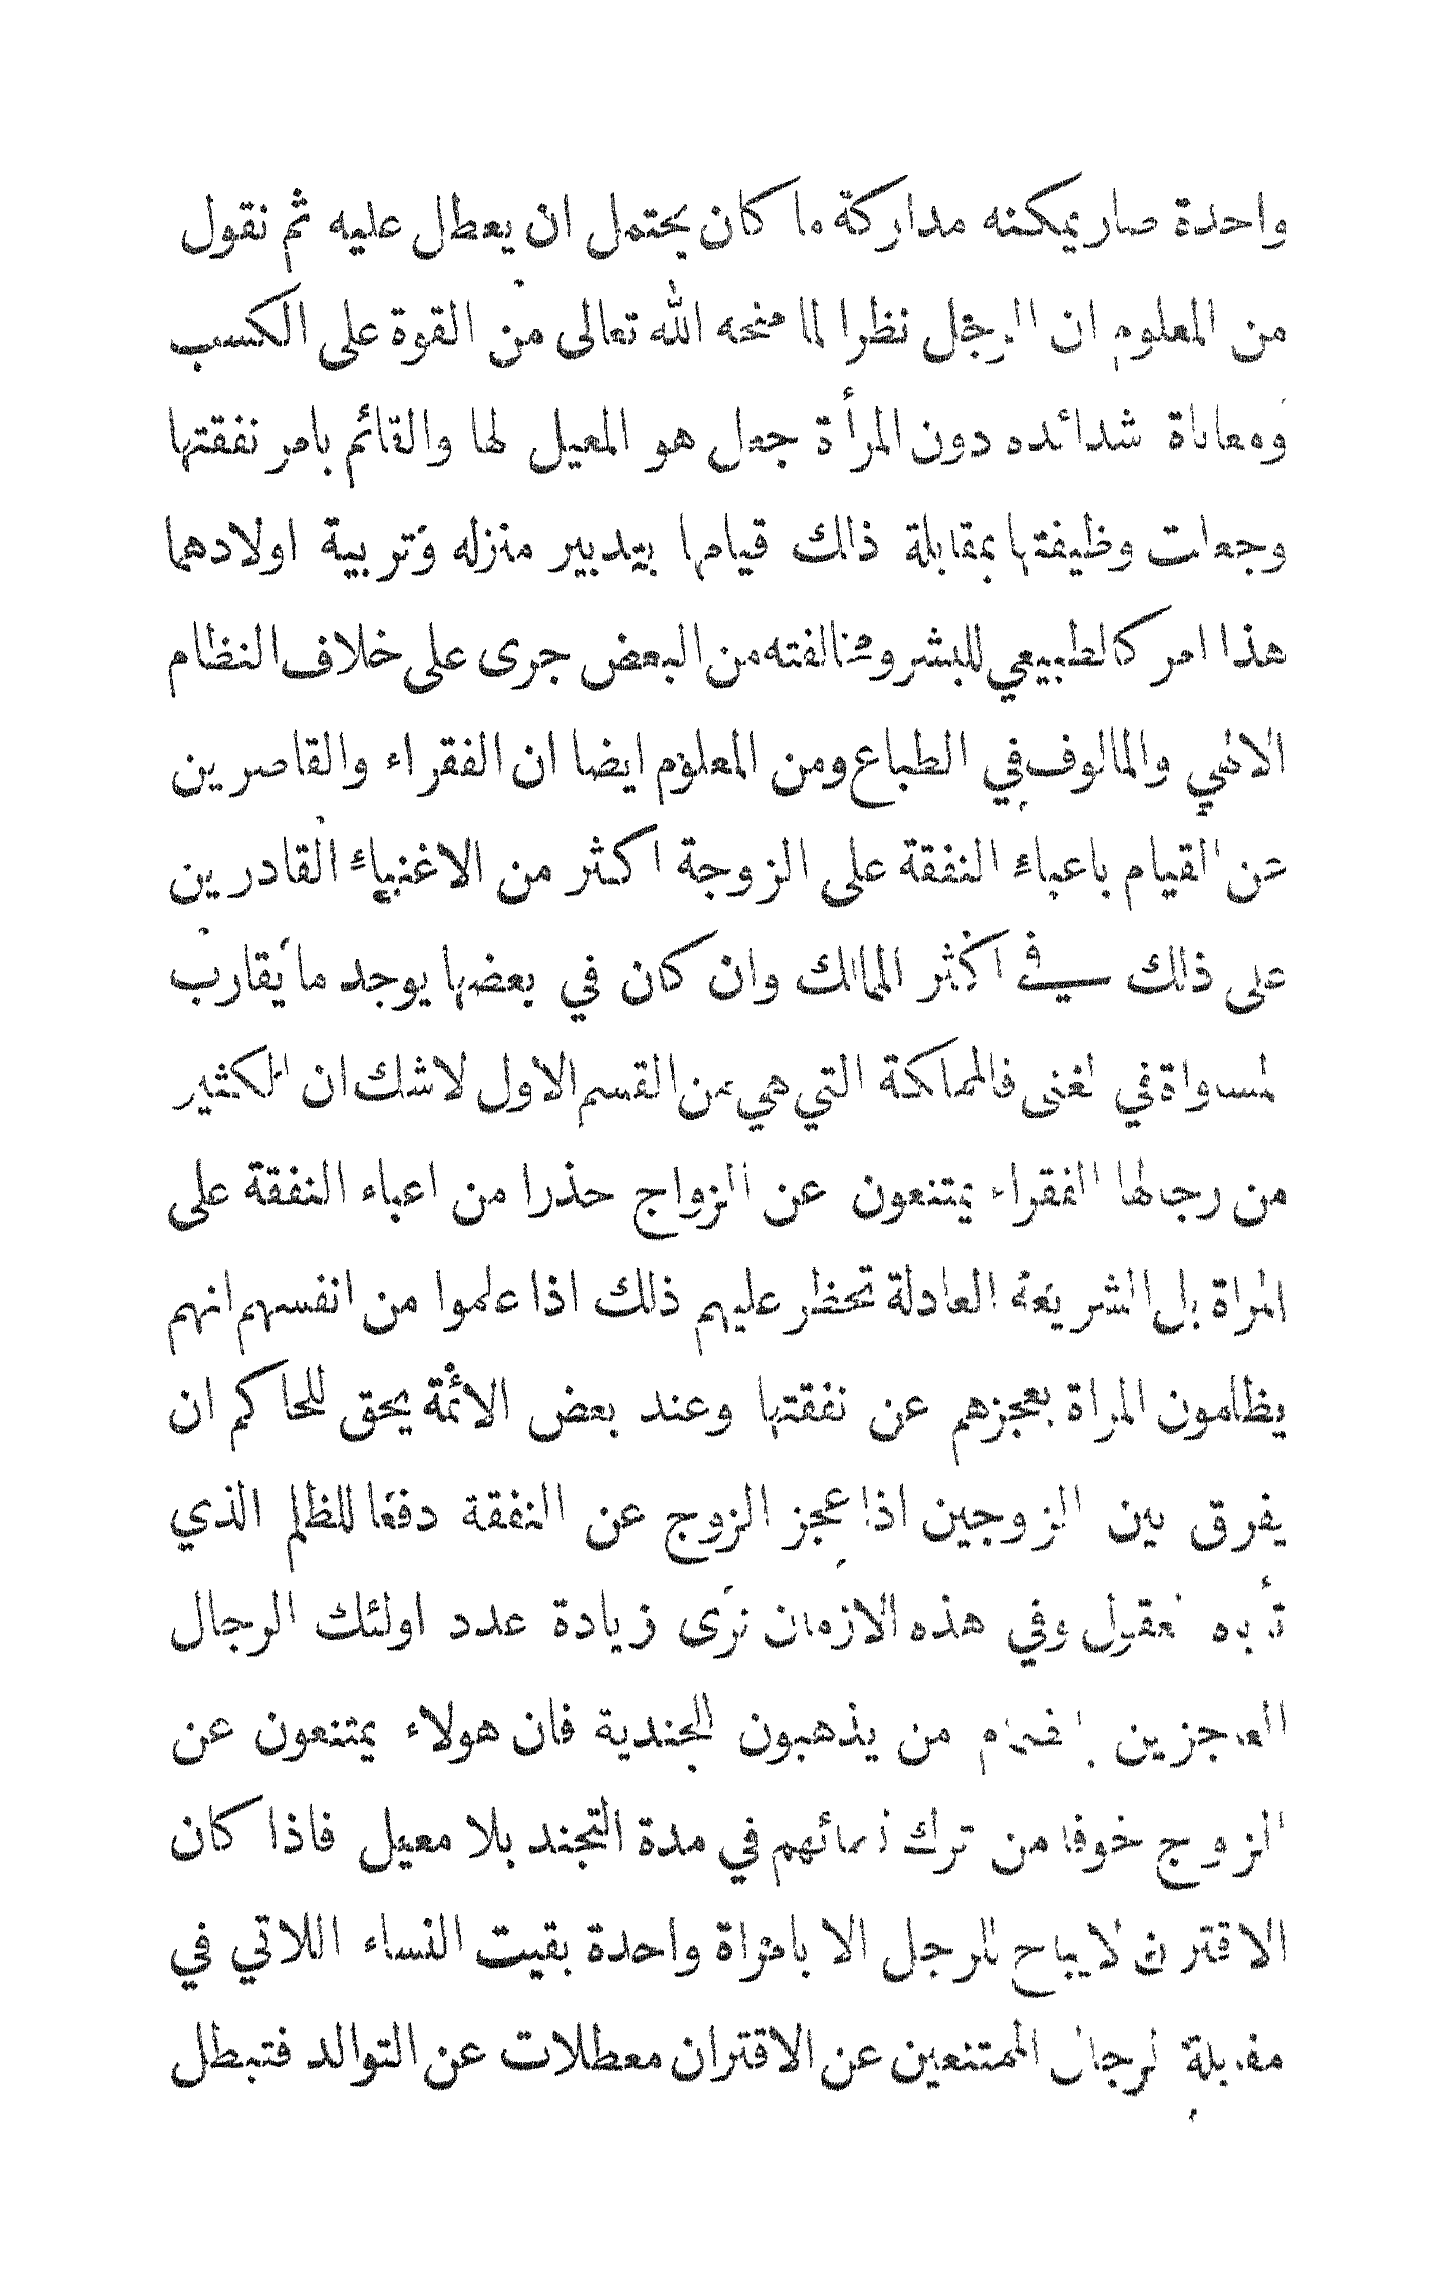 واحدة صار يمكنه مداركة ما كان يحتمل ان يعطل عليه ثم نقول
من المعلوم ان الرجل نظرا لما منحه الله تعالى من القوة على الكسب
ومعاناة شدائده دون المرأة جعل هو المعيل لها والقائم بامر نفقتها
وجعلت وظيفتها بمقابلة ذلك قيامها بتدبير منزله وتربية اولادهما
هذا امر كالطبيعي للبشر ومخالفته من البعض جرى على خلاف النظام
الالهي والمالوف في الطباع ومن المعلوم ايضا ان الفقراء والقاصرين
عن القيام باعباء النفقة على الزوجة اكثر من الاغنياء القادرين
على ذلك في اكثر الممالك وان كان في بعضها يوجد ما يقارب
لمساواة في الغنى فالمملكة التي هي من القسم الاول لا شك ان الكثير
من رجالها الفقراء يمتنعون عن الزواج حذرا من اعباء النفقة على
المراة بل الشريعة العادلة تحظر عليهم ذلك اذا علموا من انفسهم انهم
يظلمون المراة بعجزهم عن نفقتها وعند بعض الائمة يحق للحاكم ان
يفرق بين الزوجين اذا عجز الزوج عن النفقة دفعا للظلم الذي
تأباه العقول وفي هذه الازمان نرى زيادة عدد اولئك الرجال
العاجزين من يذهبون للجندية فان هولاء يمتنعون عن
الزوج خوفا من ترك نسائهم في مدة التجند بلا معيل فاذا كان
الاقتران لا يباح للرجل الا بامراة واحدة بقيت النساء اللاتي في
مقابلة الرجال الممتنعين عن الاقتران معطلات عن التوالد فتبطل